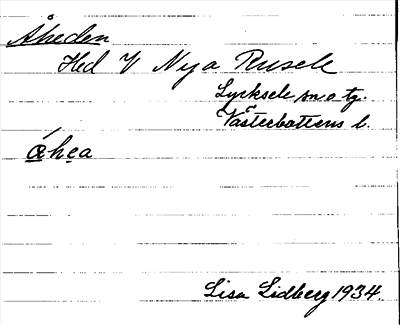 Åheden
Hed V Nya Rusele
Lycksele sn o tg.
Västerbottens l.
ǽhe̞a
Lisa Lidberg 1934.